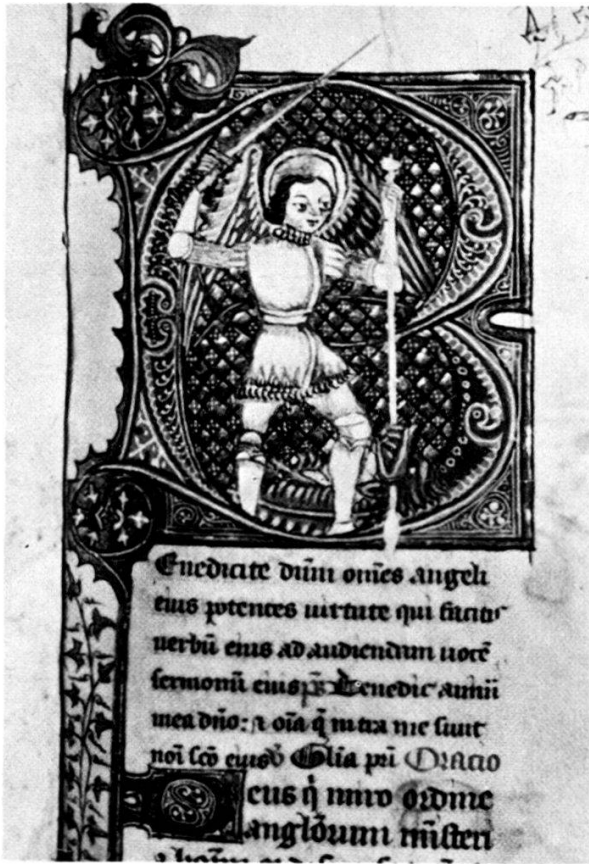 Benedicite dum omes angeli
eius potentes uirtute qui facitis
uerbū eius ad audiendam uocē
sermonū eius ps Benedic anima
mea dño: & oīa q̄ intra me sunt
noī scō eius v̄ Glia pri Oracio
Deus q̄ miro ordine
anglōrum misteri